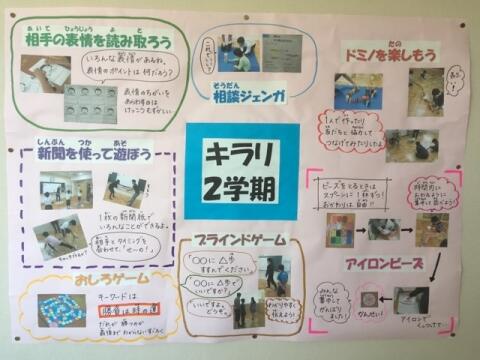 あいて ひょうじょう よ と
相手の表情を読み取ろう
いろんな表情があるね。
表情のポイントは何だろう？
表情のちがいを
あらわすのは
けっこうむずかしい。
そうだん
相談ジェンガ
たの
ドミノを楽しもう
1人で作ったり
友だちと協力して
つなげてみたりしたよ
しんぶん つか あそ
新聞を使って遊ぼう
1枚の新聞紙で
いろんなことができるよ。
相手とタイミングを
合わせて、「せーの！」
キラリ
2学期
ビーズをとるときは
スプーンに1杯ずつ！
おかわりは自由！！
時間内に
アイロンビーズ
みんな
集中して
がんばりました！
かんせい！
アイロンで
くっつけて…
ブラインドゲーム
「〇〇に△歩
すすんでください。」
「〇〇に△歩で
いいですか？」
「いいですよ。
どうぞ。」
わかりやすく
伝えよう！
おしろゲーム
キーワードは
勝負は時の運
だれが勝つのか
最後までわからないすごろく